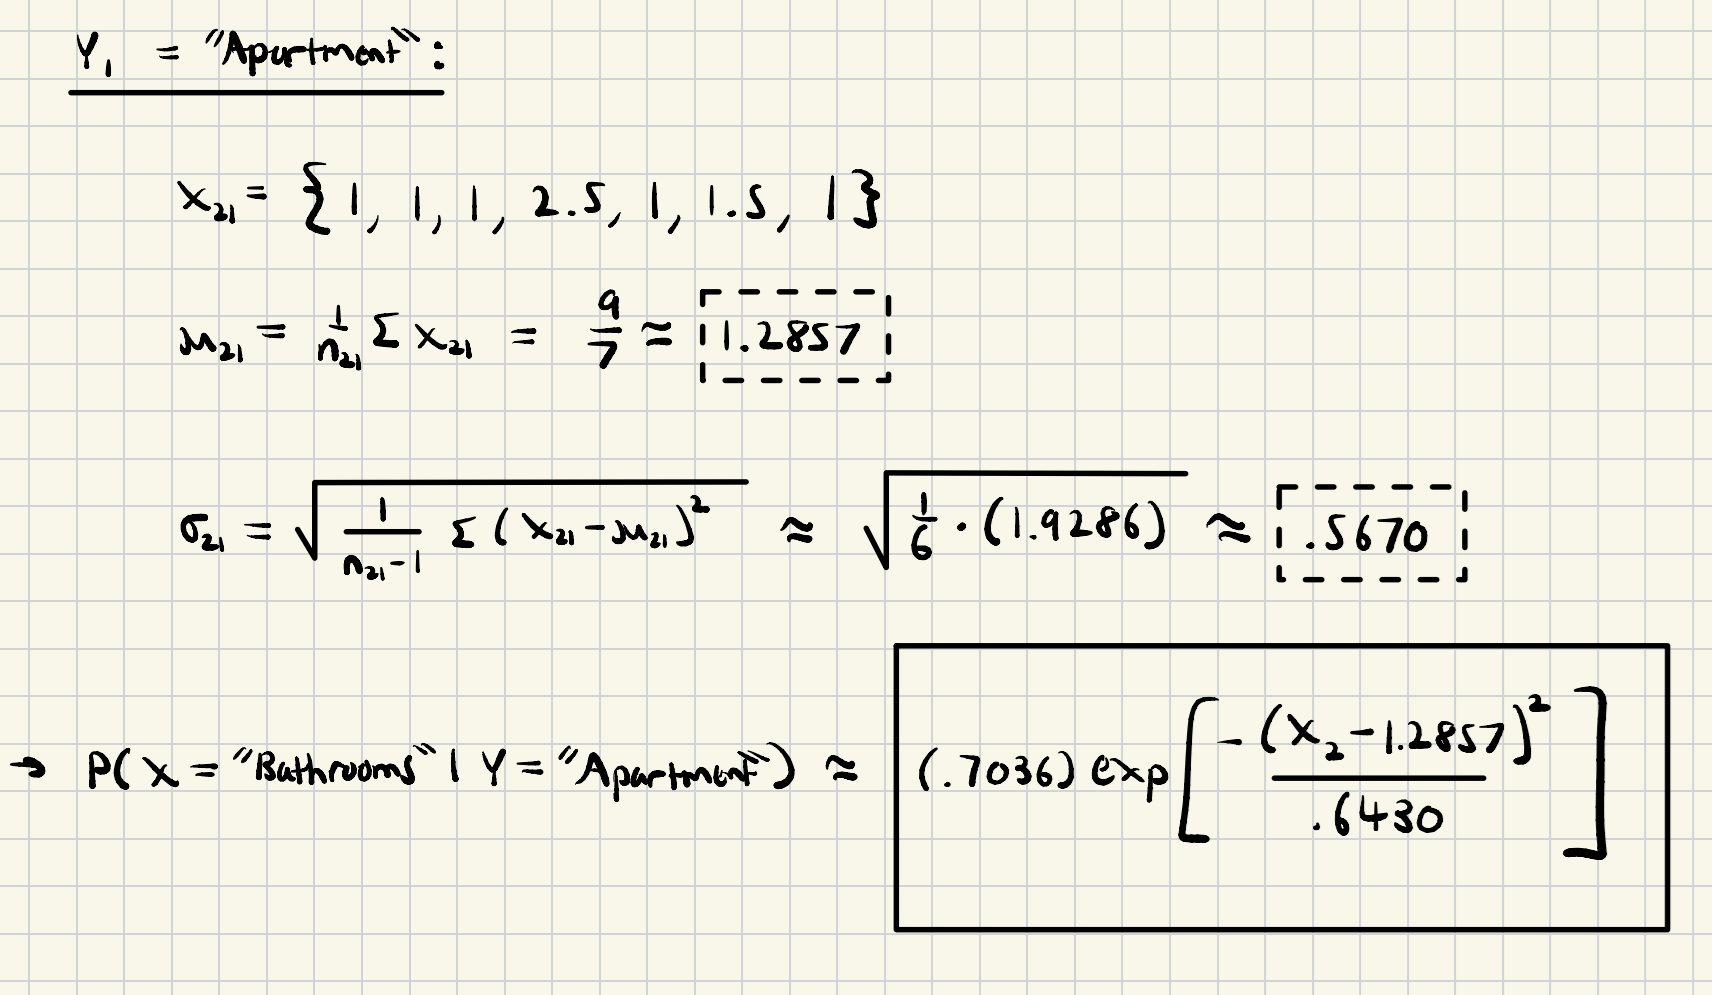 Y₁ = "Apartment":
x₂₁ = {1, 1, 1, 2.5, 1, 1.5, 1}
μ₂₁ = 1/n₂₁ Σ x₂₁ = 9/7 ≈ 1.2857
σ₂₁ = √(1/(n₂₁-1) Σ (x₂₁-μ₂₁)²) ≈ √(1/6 · (1.9286)) ≈ .5670
→ P(X = "Bathrooms" | Y = "Apartment") ≈ (.7036) exp[-(x₂-1.2857)²/.6430]